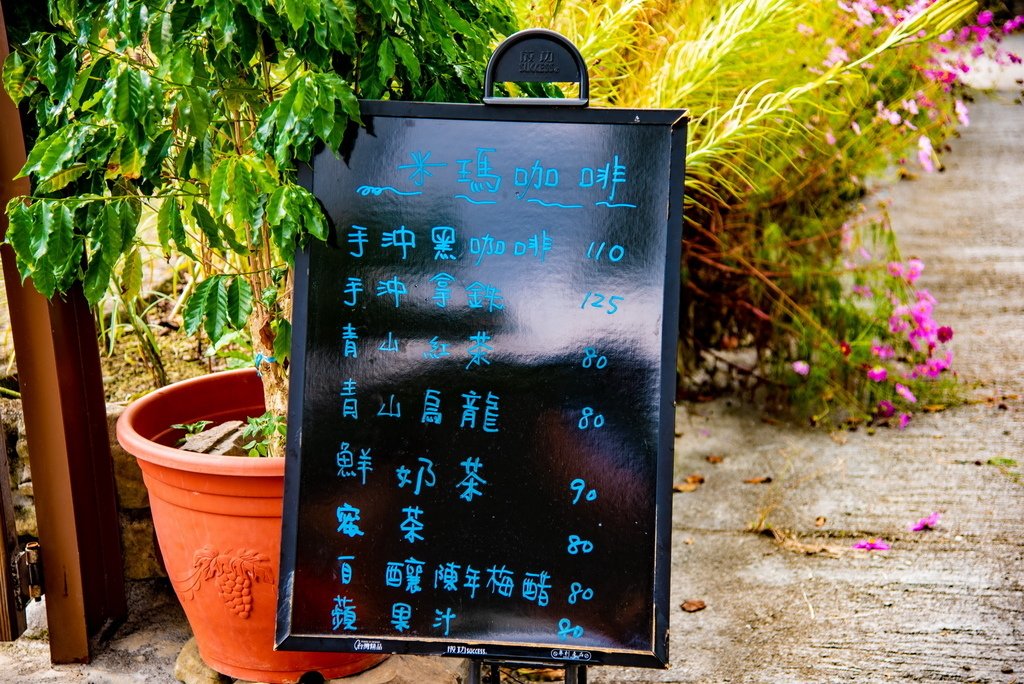 成功
SUCCESS
米瑪咖啡
手沖黑咖啡 110
手沖拿鉄 125
青山紅茶 80
青山烏龍 80
鮮奶茶 90
蜜茶 80
自釀陳年梅醋 80
蘋果汁 80
台灣精品
成功 SUCCESS.
專利產品